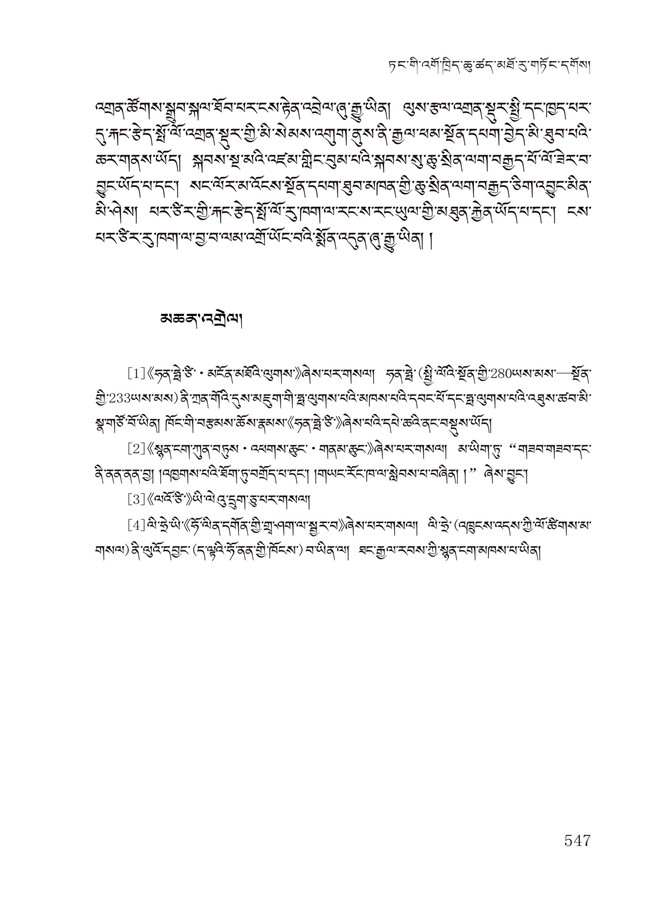 ཏང་གི་འགོ་ཁྲིད་ཆུ་ཚད་མཐོ་རུ་གཏོང་དགོས།
འགྲན་ཚོགས་སྒྲུབ་སྐལ་ཐོབ་པར་ངས་རྟེན་འབྲེལ་ཞུ་རྒྱུ་ཡིན། ལུས་རྩལ་འགྲན་སྡུར་སྤྱི་དང་ཁྱད་པར་
དུ་རྐང་རྩེད་སྤོ་ལོ་འགྲན་སྡུར་གྱི་མི་སེམས་འགུག་ནུས་ནི་རྒྱལ་པམ་སྔོན་དཔག་བྱེད་མི་ཐུབ་པའི་
ཆར་གནས་ཡོད། སྐབས་སྔ་མའི་འཛམ་གླིང་བུམ་པའི་སྐབས་སུ་ཆུ་སྲིན་ལག་བརྒྱད་པོ་ལོ་ཟེར་བ་
བྱུང་ཡོད་པ་དང་། སང་ལོར་མ་འོངས་སྔོན་དཔག་ཐུབ་མཁན་གྱི་ཆུ་སྲིན་ལག་བརྒྱད་ཅིག་འབྱུང་མིན་
མི་ཤེས། པར་ཙེར་གྱི་རྐང་རྩེད་སྤོ་ལོ་རུ་ཁག་ལ་རང་ས་རང་ཡུལ་གྱི་མཐུན་རྐྱེན་ཡོད་པ་དང་། ངས་
པར་ཙེར་རུ་ཁག་ལ་བྱ་བ་ལམ་འགྲོ་ཡོང་བའི་སྨོན་འདུན་ཞུ་རྒྱུ་ཡིན། །
མཆན་འགྲེལ།
[1]《ཧན་ཧྥེ་ཙི་·མངོན་མཐོའི་ལུགས་》ཞེས་པར་གསལ། ཧན་ཧྥེ་(སྤྱི་ལོའི་སྔོན་གྱི་280ཡས་མས་—སྔོན་
གྱི་233ཡས་མས)ནི་ཀྲན་གོའི་དུས་མཇུག་གི་ཧྥ་ལུགས་པའི་མཁས་པའི་དབང་པོ་དང་ཧྥ་ལུགས་པའི་འཐུས་ཚབ་མི་
སྣ་གཙོ་བོ་ཡིན། ཁོང་གི་བརྩམས་ཆོས་རྣམས་《ཧན་ཧྥེ་ཙི་》ཞེས་པའི་དཔེ་ཆའི་ནང་བསྡུས་ཡོད།
[2]《སྙན་ངག་ཀུན་བཏུས་·འཕགས་ཆུང་·གནམ་ཆུང་》ཞེས་པར་གསལ། མ་ཡིག་ཏུ་“གཟབ་གཟབ་དང་
ནི་ནན་ནན་བྱ། །འཁྱགས་པའི་ཐོག་ཏུ་བགྲོད་པ་དང་། །གཡང་རོང་ཁ་ལ་སླེབས་པ་བཞིན། །”ཞེས་བྱུང་།
[3]《ལའོ་ཙི་》ཡི་ལེའུ་དྲུག་ཅུ་པར་གསལ།
[4]ལི་ཧྲེ་ཡེ་《ཧོ་ལིན་དགོན་གྱི་གྲྭ་ཤག་ལ་སྦྱར་བ》ཞེས་པར་གསལ། ལི་ཧྲེ་(འཁྲུངས་འདས་ཀྱི་ལོ་ཚིགས་མ་
གསལ)ནི་ལུའོ་དབྱང་(ད་ལྟའི་ཧོ་ནན་གྱི་ཁོངས་)བ་ཡིན་ལ། ཐང་རྒྱལ་རབས་ཀྱི་སྙན་ངག་མཁས་པ་ཡིན།
547